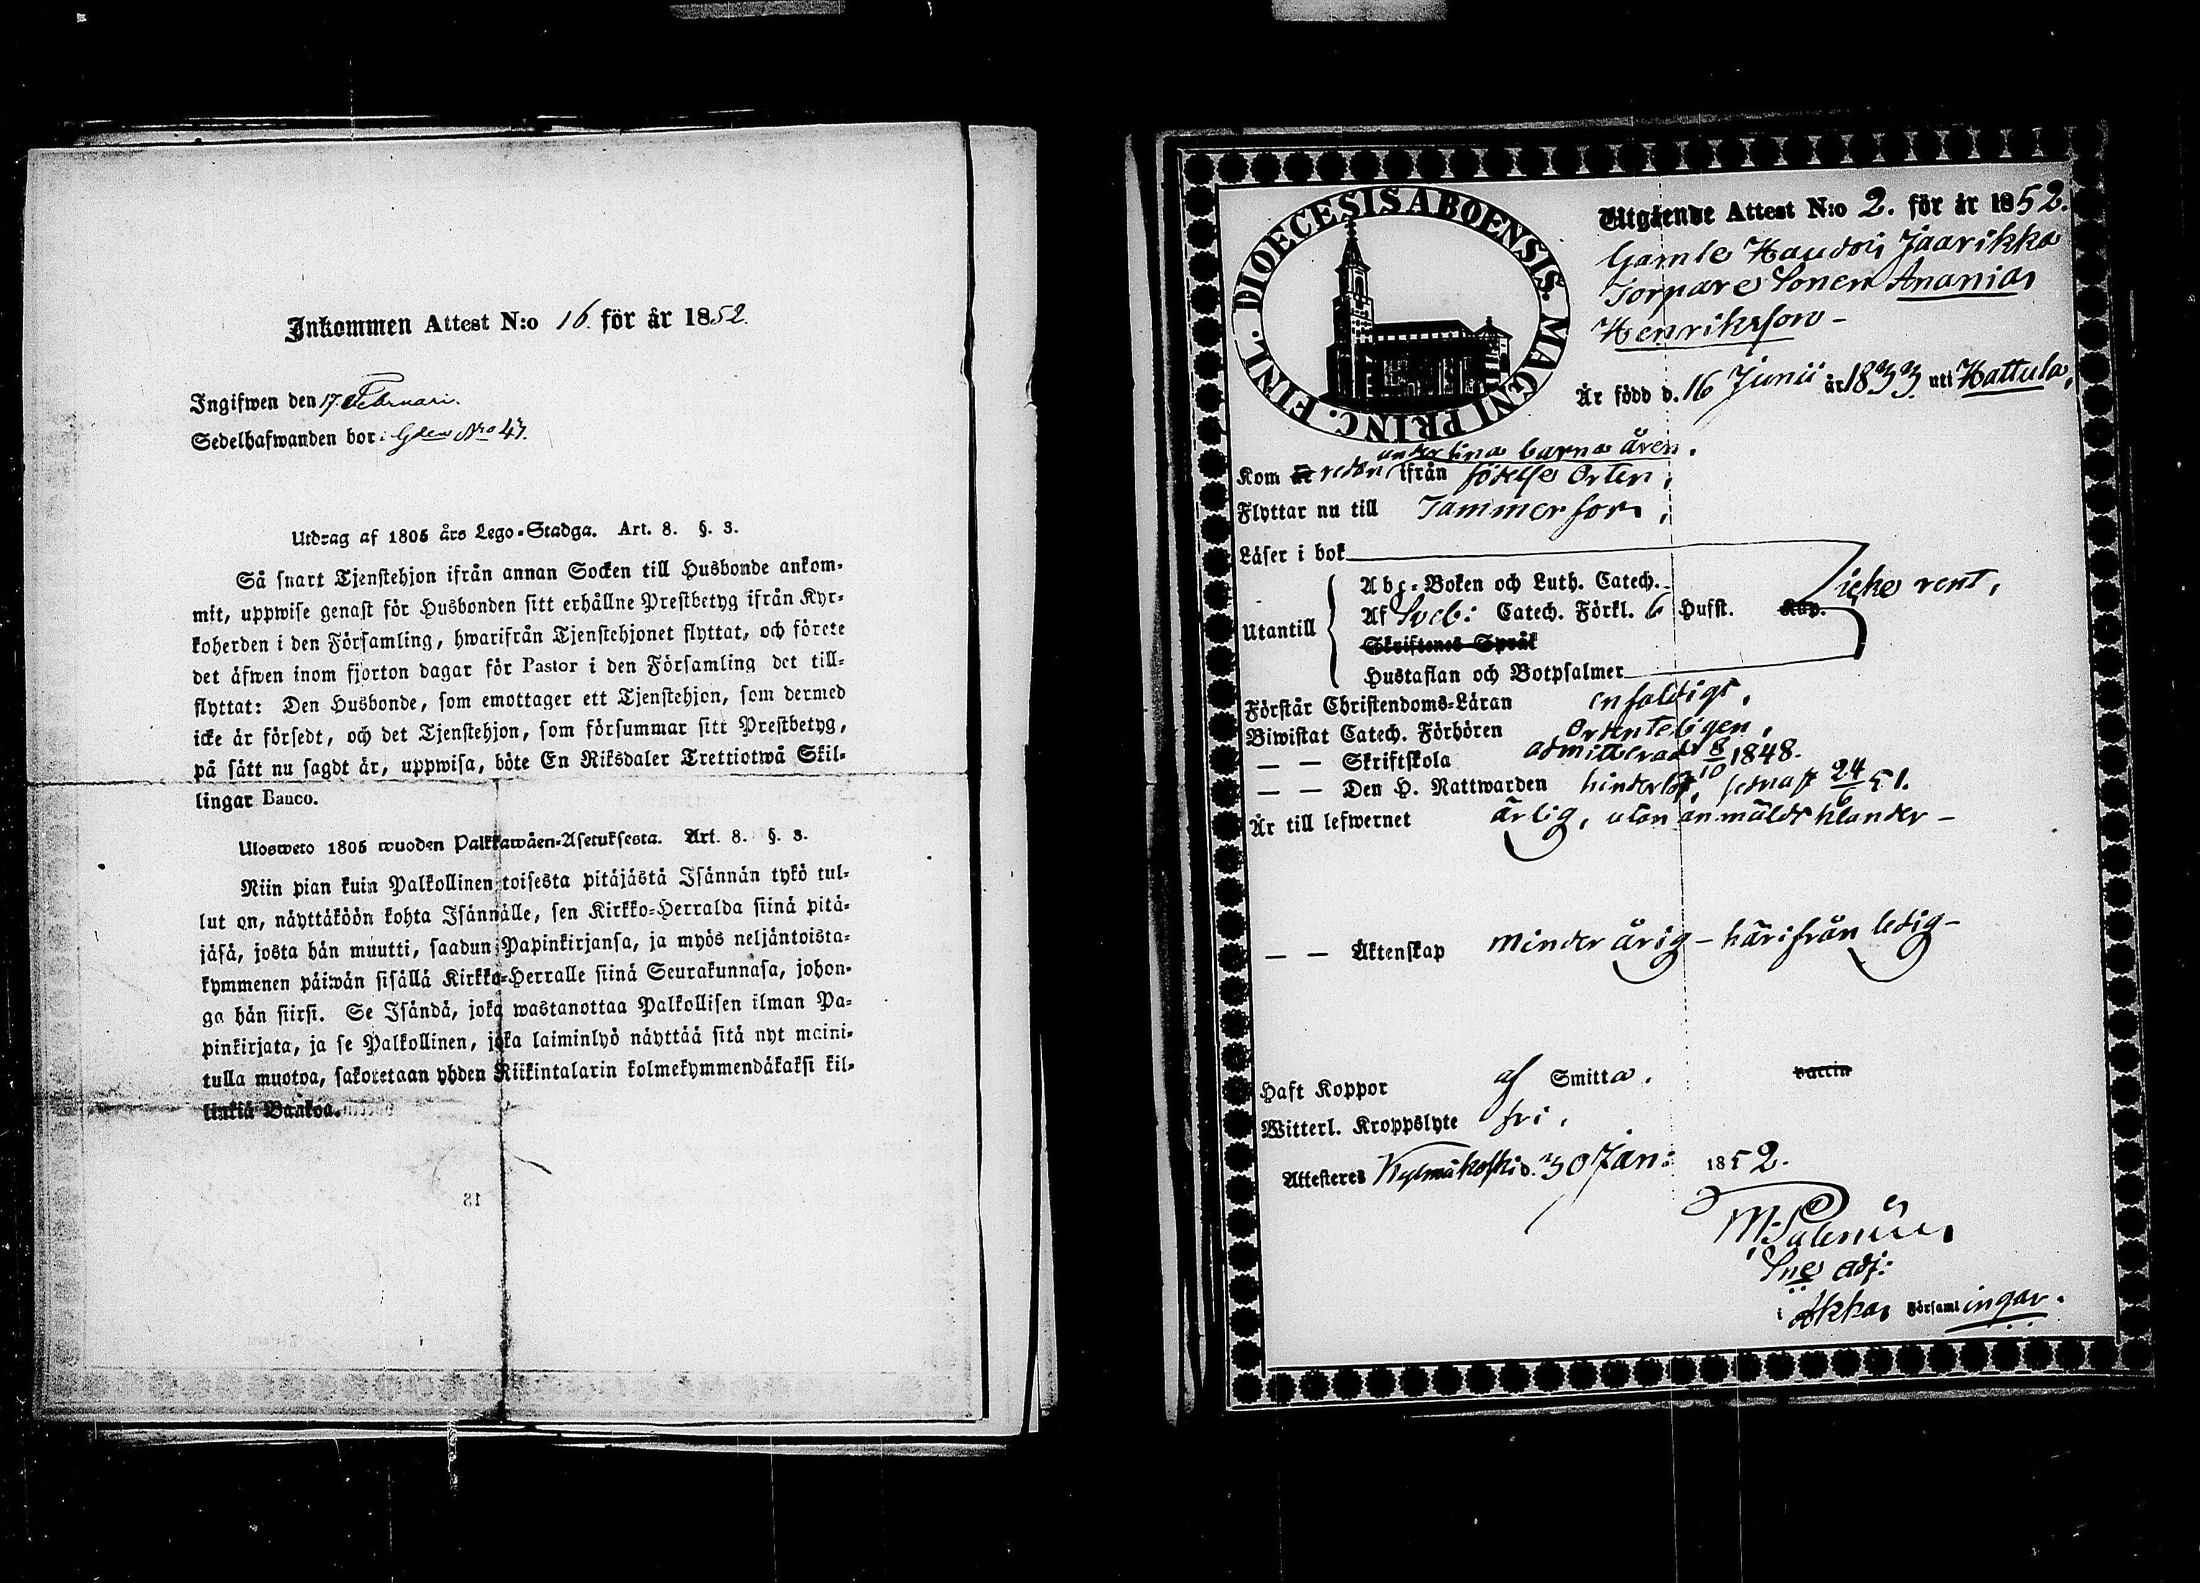 Inkommen Attest N:o 16. för år 1852.
Ingifwen den 17. Februari.
Sedelhafwanden bor i Gden Nro 43.
Utdrag af 1805 års Lego-Stadga. Art. 8. §. 3.
Så snart Tjenstehjon ifrån annan Socken till Husbonde ankom-
mit, uppwise genast för Husbonden sitt erhållne Prestbetyg ifrån Kyr-
koherden i den Församling, hwarifrån Tjenstehjonet flyttat, och förete
det äfwen inom fjorton dagar för Pastor i den Församling det till-
flyttat: Den Husbonde, som emottager ett Tjenstehjon, som dermed
icke är försedt, och det Tjenstehjon, som försummar sitt Prestbetyg,
på sätt nu sagdt är, uppwisa, böte En Riksdaler Trettiotwå Skil-
lingar Banco.
Ulosweto 1805 wuoden Palkkawäen-Asetuksesta. Art. 8. §. 3.
Niin pian kuin Palkollinen toisesta pitäjästä Isännän tykö tul-
lut on, näyttäköön kohta Isännälle, sen Kirkko-Herralda siinä pitä-
jäsä, josta hän muutti, saadun Papinkirjansa, ja myös neljäntoista-
kymmenen päiwän sisällä Kirkko-Herralle siinä Seurakunnasa, johon-
ga hän siirsi. Se Isändä, joka wastanottaa Palkollisen ilman Pa-
pinkirjata, ja se Palkollinen, joka laiminlyö näyttää sitä nyt maini-
tulla muotoa, sakotetaan yhden Riikintalarin kolmekymmendäkaksi kil-
linkiä Bankoa.
18
DIOECESIS ABOENSIS. MAGNI PRINC. FINL.
Utgående Attest N:o 2. för år 1852.
Gamle Haudois Jaarikka
Torpare Sonen Ananias
Henriksson -
Är född d. 16 Junii år 1833. uti Hattula,
under sina barna åren.
Kom år redan ifrån födelse Orten,
Flyttar nu till Tammerfors,
Läser i bok
Abc-Boken och Luth. Catech.
icke rent,
Utantill
Af Sveb: Catech. Förkl. 6 Hufst. Kap.
Skriftenes Språk
Hustaflan och Botpsalmer
Förstår Christendoms-Läran enfaldigt,
Biwistat Catech. Förhören Ordenteligen,
— — Skriftskola admitterad d. 8/10 1848.
— — Den H. Nattwarden sednast 24/6 51.
Är till lefwernet ärlig, utan anmäldt klander -
— — Äktenskap minder årig - härifrån ledig -
Haft Koppor af Smitta. vaccin
Witterl. Kroppslyte fri,
Attesteres Kylmäkoski d. 30 Jan: 1852.
M. Salenius
Sne adj:
i Akkas Församlingar.